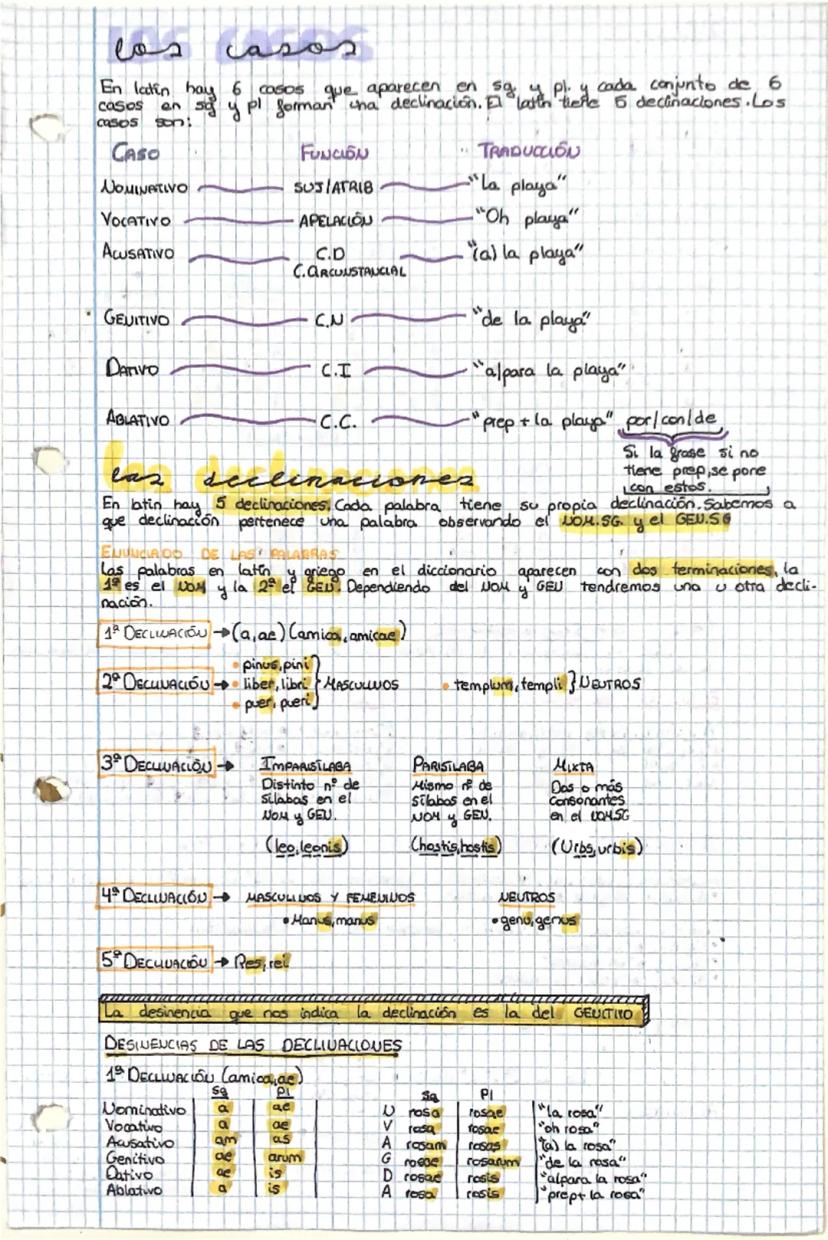 los casos
En latín hay 6 casos que aparecen en sg. y pl. y cada conjunto de 6
casos en sg y pl forman una declinación. El latín tiene 5 declinaciones. Los
casos son:
CASO FUNCIÓN TRADUCCIÓN
NOMINATIVO SUJ/ATRIB "La playa"
VOCATIVO APELACIÓN "Oh playa"
ACUSATIVO C.D "(a) la playa"
C.CIRCUNSTANCIAL
GENITIVO C.N "de la playa"
DATIVO C.I "a/para la playa"
ABLATIVO C.C. "prep + la playa" por/con/de
Si la frase si no
tiene prep, se pone
con estos.
las declinaciones
En latín hay 5 declinaciones. Cada palabra tiene su propia declinación. Sabemos a
que declinación pertenece una palabra observando el NOM.SG. y el GEN.SG
ENUNCIADO DE LAS PALABRAS
Las palabras en latín y griego en el diccionario aparecen con dos terminaciones, la
1ª es el NOM y la 2ª el GEN. Dependiendo del NOM y GEN tendremos una u otra decli-
nación.
1ª DECLINACIÓN → (a, ae) (amica, amicae)
2ª DECLINACIÓN → • pinus, pini
• liber, libri } MASCULINOS • templum, templi } NEUTROS
• puer, pueri
3ª DECLINACIÓN → IMPARISÍLABA PARISÍLABA MIXTA
Distinto nº de Mismo nº de Dos o más
sílabas en el sílabas en el consonantes
NOM y GEN. NOM y GEN. en el NOM.SG
(leo, leonis) (hostis, hostis) (Urbs, urbis)
4ª DECLINACIÓN → MASCULINOS Y FEMENINOS NEUTROS
• Manus, manus • genu, genus
5ª DECLINACIÓN → Res, rei
La desinencia que nos indica la declinación es la del GENITIVO
DESINENCIAS DE LAS DECLINACIONES
1ª DECLINACIÓN (amica, ae)
Sg Pl Sg Pl
Nominativo a ae N rosa rosae "la rosa"
Vocativo a ae V rosa rosae "oh rosa"
Acusativo am as A rosam rosas "(a) la rosa"
Genitivo ae arum G rosae rosarum "de la rosa"
Dativo ae is D rosae rosis "a/para la rosa"
Ablativo a is A rosa rosis "prep+ la rosa"